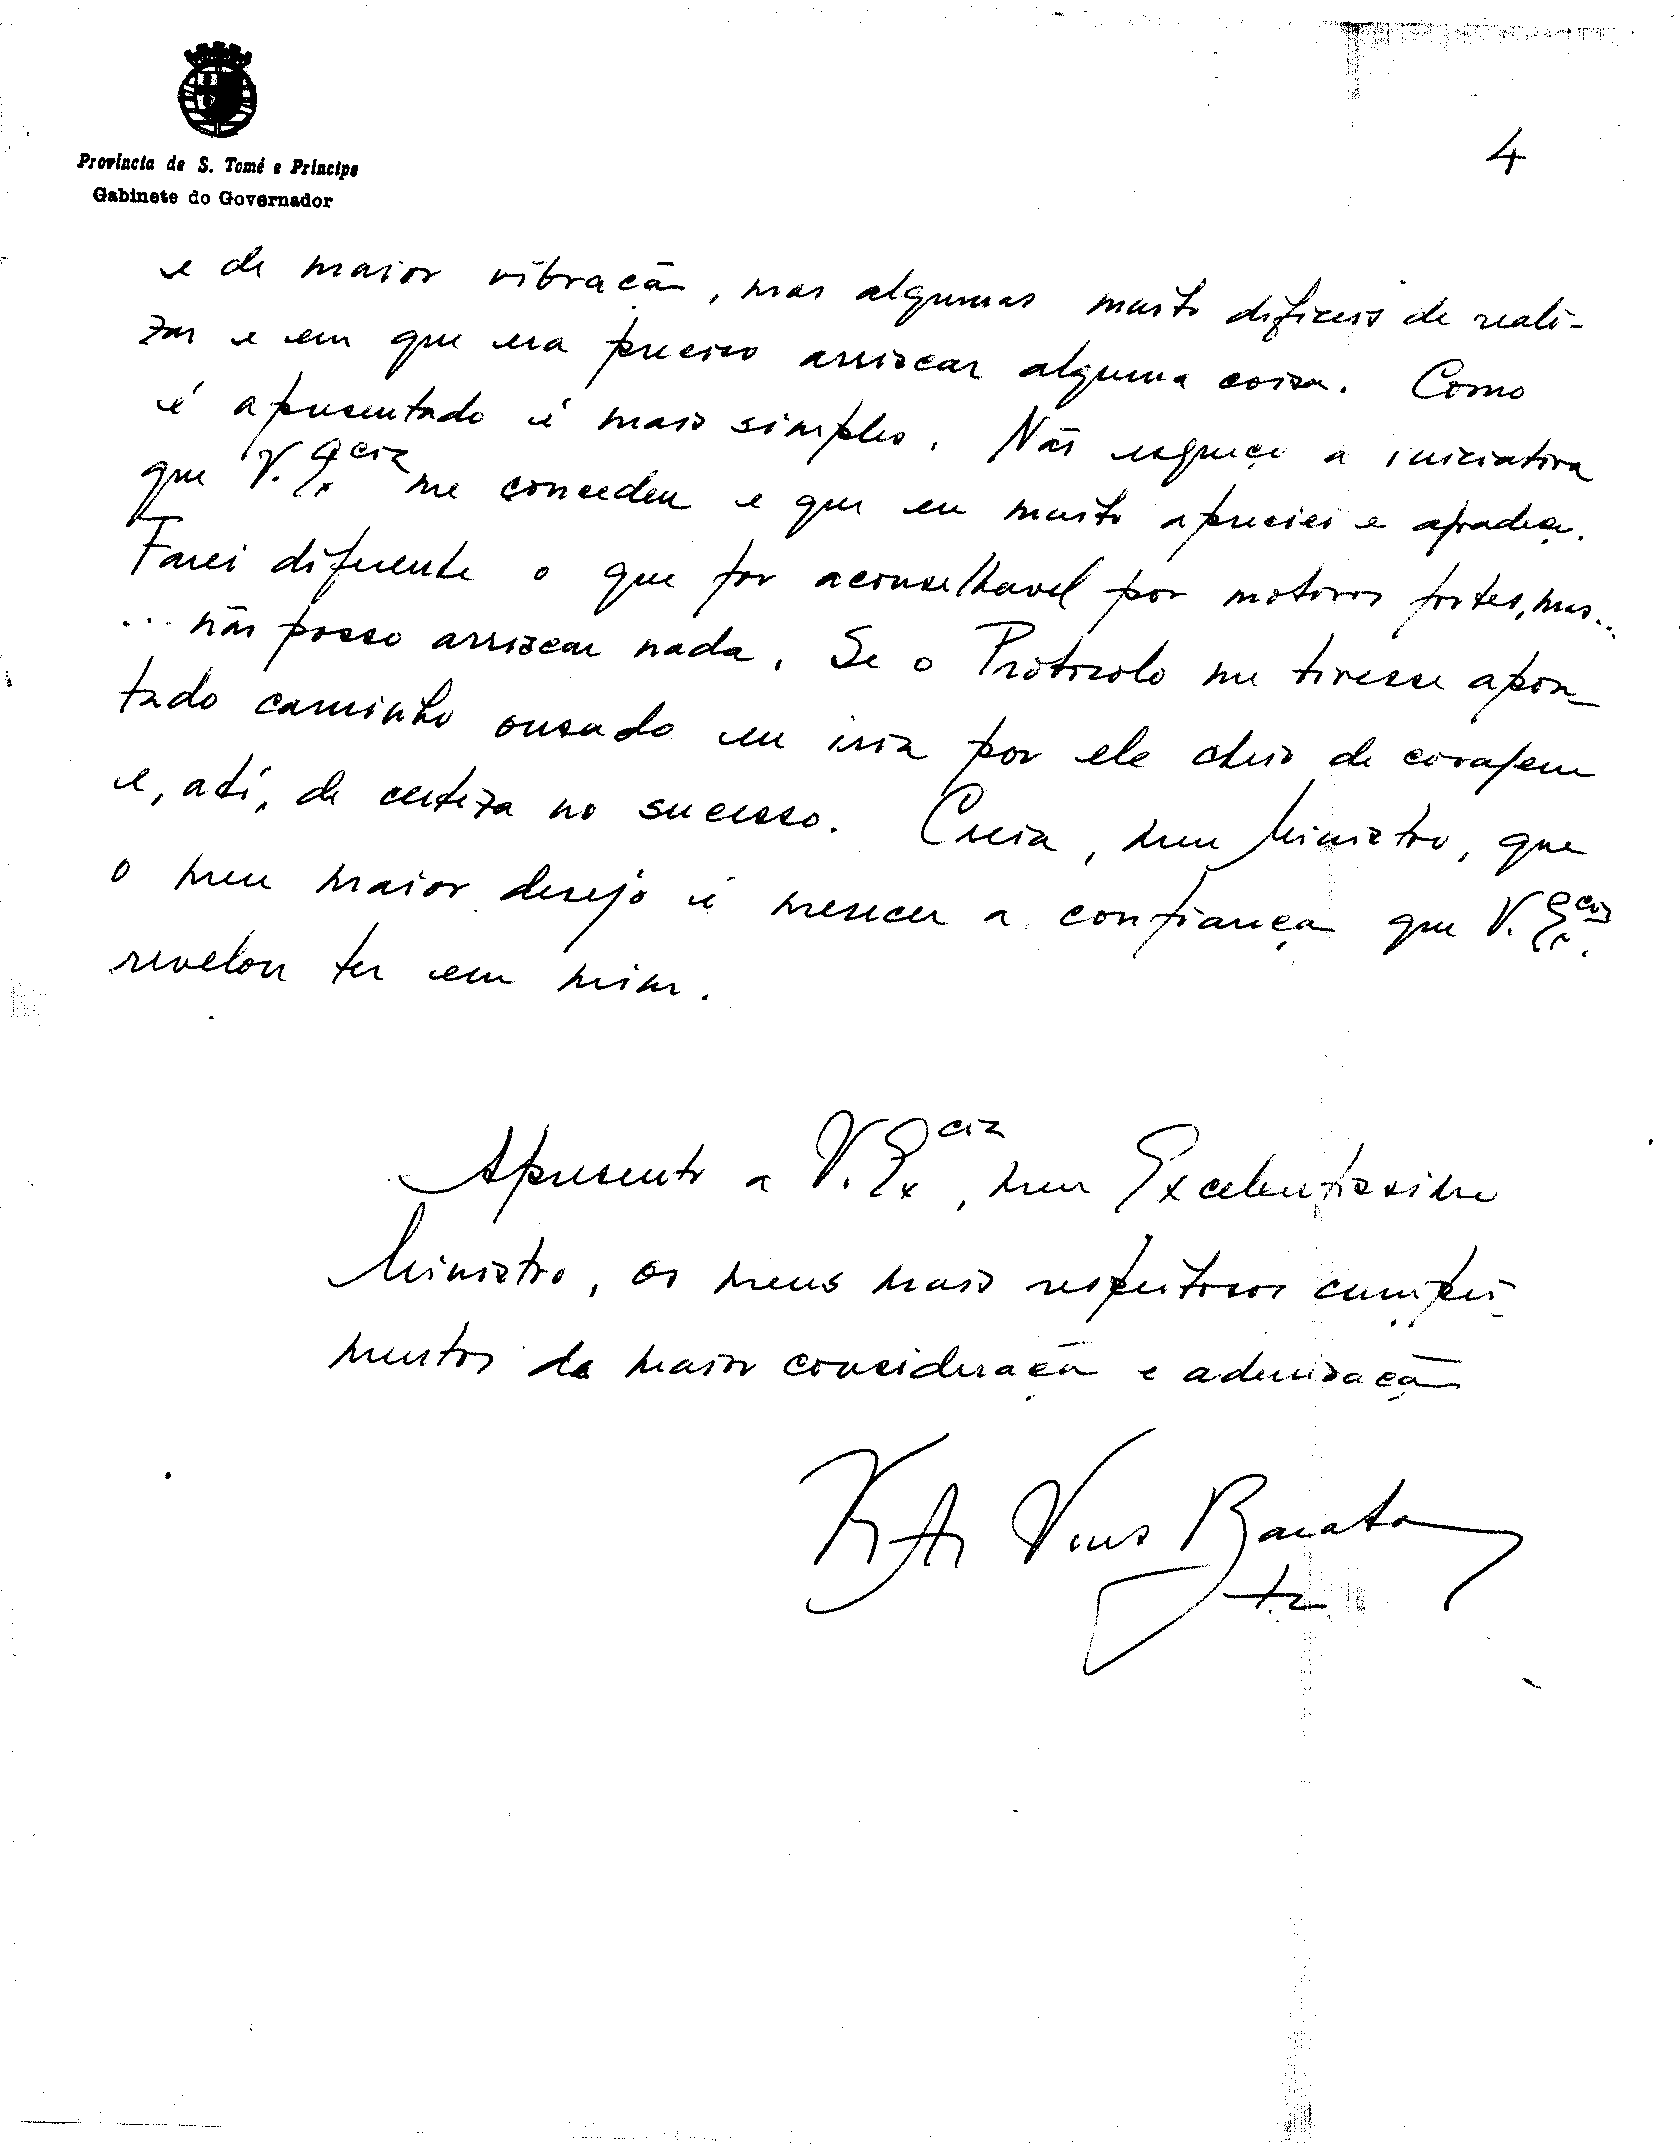 Província de S. Tomé e Príncipe
Gabinete do Governador
4
e de maior vibração, mas algumas muito difíceis de reali-
zar e em que era preciso arriscar alguma coisa. Como
é apresentado é mais simples. Não esqueço a iniciativa
que V. Excia me concedeu e que eu muito apreciei e agradeço.
Farei diferente o que for aconselhavel por motivos fortes, mas...
... não posso arriscar nada. Se o Protocolo me tivesse apon-
tado caminho ousado eu iria por ele cheio de coragem
e, até, de certeza no sucesso. Creia, meu Ministro, que
o meu maior desejo é merecer a confiança que V. Excia.
revelou ter em mim.
Apresento a V. Excia, meu Excelentissimo
Ministro, os meus mais respeitosos cumpri-
mentos da maior consideração e admiração
Pires Barata